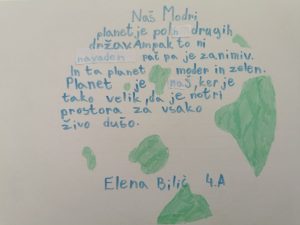 Naš Modri
planet je poln drugih
držav. Ampak to ni
navaden rač pa je zanimiv.
In ta planet moder in zelen.
Planet je naš, ker je
tako velik, da je notri
prostora za vsako
živo dušo.
Elena Bilić 4.A